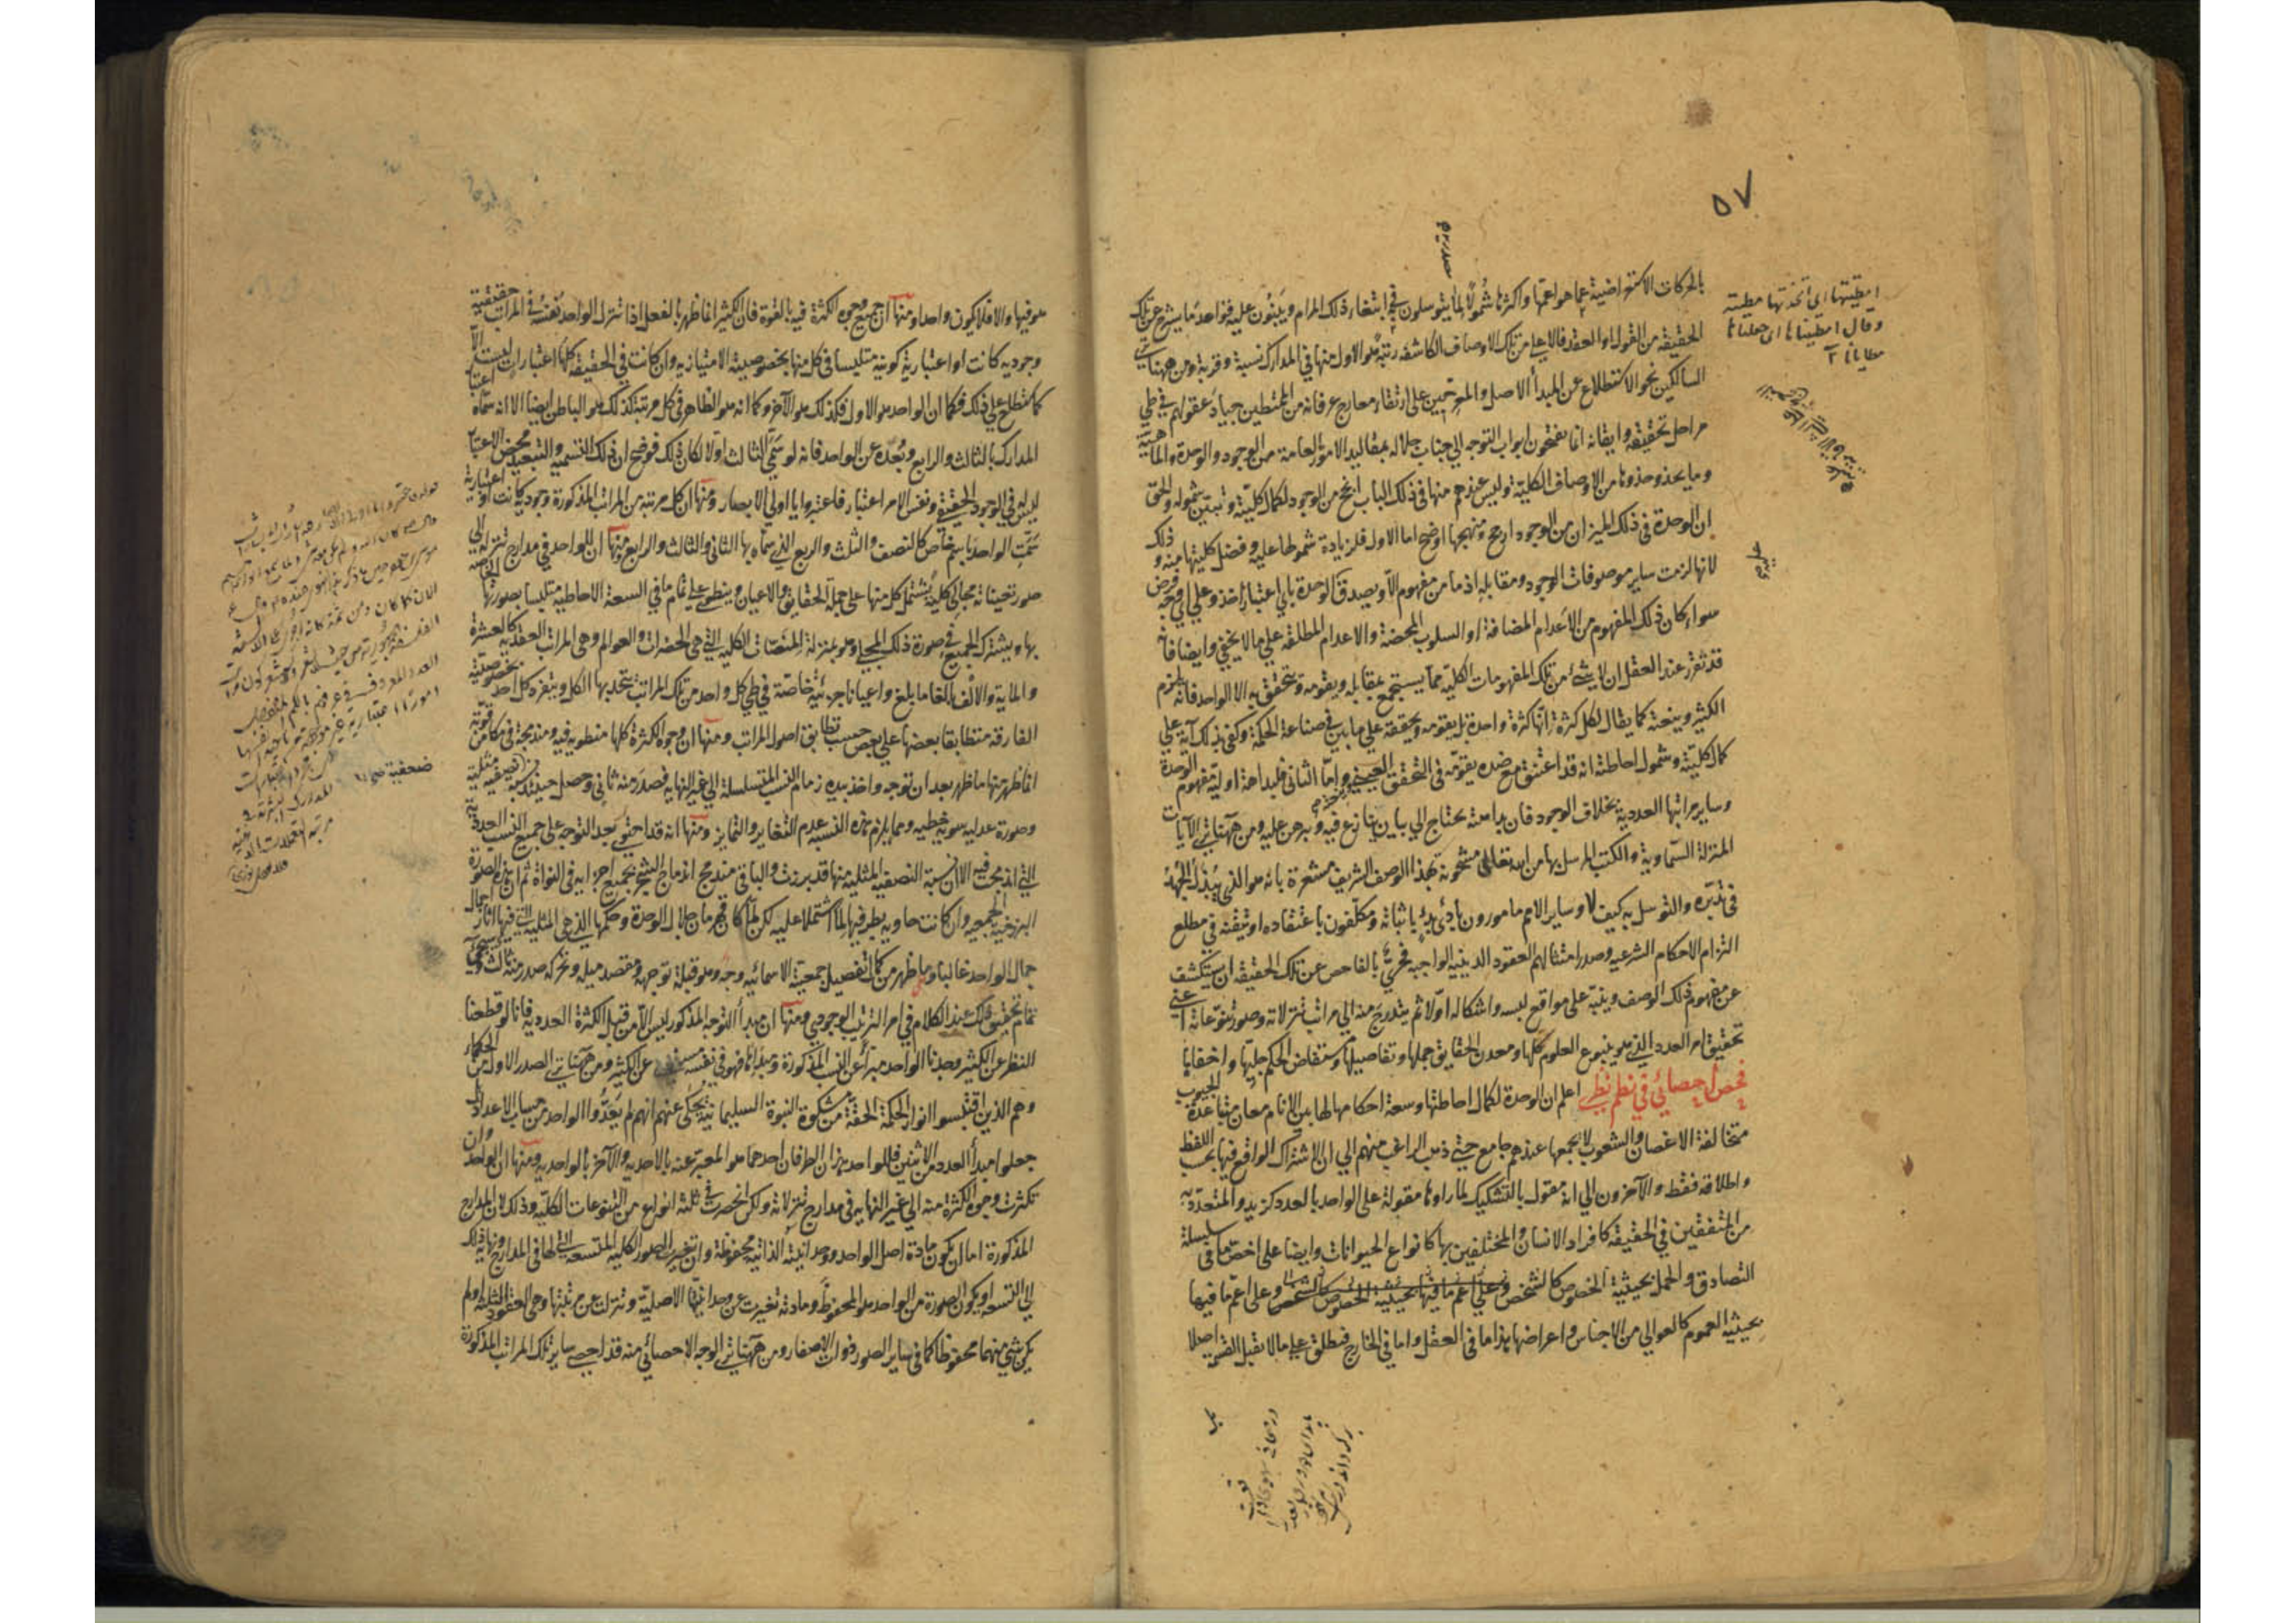 ٥٧
بالحركات الاستعراضية عما هو اعمها واكثرها شمولا لما يتوسلون في ابتغاء ذلك المرام ويبنون عليه فواحد ما يشرح عن تلك
الحقيقة من القول او العقد فالاعلى من تلك الاوصاف الكاشفة رتبة هو الاول منها في المدارك نسبة وقربة ومن ههنا
السالكين نحو الاستطلاع عن المبدأ الاصل والمعرجين على ارتقاء معارج عرفانه من الممتطين جياد عقولهم في طي
مراحل تحقيقه وايقانه انما يفتحون ابواب التوجه الى جناب جلاله بمقاليد الامور العامة من الوجود والوحدة والماهية
وما يحذو حذوها من الاوصاف الكلية وليس عندهم منها في ذلك الباب انجح من الوجود لكمال كليته وتبين شموله والحق
ان الوحدة في ذلك الميزان من الوجود ارجح ومنهجها اوضح اما الاول فلزيادة شمولها عليه وفضل كليتها منه وذلك
لانها لزمت ساير موصوفات الوجود ومقابله اذ ما من مفهوم الا ويصدق الوحدة باي اعتبار اخذ وعلى اي وجه فرض
سواء كان ذلك المفهوم من الاعدام المضافة او السلوب المحضة والاعدام المطلقة على ما لا يخفى وايضا فانه
قد تقرر عند العقل ان لا شئ من تلك المفهومات الكلية مما يستجمع بمقابله ويقومه ويتحقق به الا الواحد فانه يلزم
الكثير وينعته كما يقال لكل كثرة انها كثرة واحدة بل يقومه ويحققه على ما بين في صناعة الحكمة وكفى بذلك آية على
كمال كليته وشمول احاطته انه قد اعتنق مع ضده يقومه في التحقق العيني واما الثاني فلبداهة اولية مفهوم الوحدة
وساير مراتبها العددية بخلاف الوجود فان بداهته يحتاج الى بيان ينازع فيه وبرهن عليه ومن ههنا ترى الآيات
المنزلة السماوية والكتب المرسل بها من الله تعالى مشحونة بهذا الوصف الشريف مشعرة بانه هو الذي يبذل الجهد
في تدبره والتوسل به كيف لا وساير الامم مامورون بادئ بدء باثباته ومكلفون باعتقاده او تيقنه في مطلع
التزام الاحكام الشرعية وصدر امتثالهم العقود الدينية الواجبة فحري بالفاحص عن تلك الحقيقة ان يستكشف
عن مفهوم ذلك الوصف وينبه على مواقع لبسه واشكاله اولا ثم يتدرج منه الى مراتب تنزلاته وصور تنوعاته اعني
تحقيق امر العدد الذي هو ينبوع العلوم كلها ومعدن الحقايق جملها وتفاصيلها ومستفاض الحكم جليها واخفاها
فحص احصائي في نظم نظري اعلم ان الوحدة لكمال احاطتها وسعة احكامها لها بين الانام معان متباعدة الجيوب
متخالفة الاغصان والشعوب لا يجمعها عندهم جامع حتى ذهب الراغب منهم الى ان الاشتراك الواقع فيها بحسب اللفظ
واطلاقه فقط والآخرون الى انه مقول بالتشكيك لما راوها مقولة على الواحد بالعدد كزيد والمتعدد به
من المتفقين في الحقيقة كافراد الانسان والمختلفين بها كانواع الحيوانات وايضا على اخص ما في سلسلة
التصادق والحمل بحيثية الخصوص كالشخص وعلى اعم ما فيها بحيثية الخصوص كالشخص وعلى اعم ما فيها
بحيثية العموم كالعوالي من الاجناس واعراضها هذا ما في العقل واما في الخارج فيطلق على ما لا يقبل القسمة اصلا
امطيتها اي اتخذتها مطية
وقال امطيناها اي جعلناها
مطايانا
هو فيها والا فلا يكون واحدا ومنها ان جميع وجوه الكثرة فيه بالقوة فان الكثير انما ظهر بالفعل اذا تنزل الواحد بنفسه في المراتب حقيقية
وجودية كانت او اعتبارية كونية متلبسا في كل منها بخصوصيته الامتيازية وان كانت في الحقيقة كلها اعتبارات ليست الا
كما ستطلع على ذلك فكما ان الواحد هو الاول فكذلك هو الآخر وكما انه هو الظاهر في كل مرتبة كذلك هو الباطن ايضا الا انه سماه
المدارك بالثالث والرابع وبعده عن الواحد فانه لو سمي الثالث اولا لكان ذلك فوضح ان ذلك التسمية والتبعيد محض الاعتبار
ليس في الوجود الحقيقي ونفس الامر اعتبار فاعتبروا يا اولي الابصار ومنها ان كل مرتبة من المراتب المذكورة وجودية كانت او اعتبارية
سمت الواحد باسم خاص كالنصف والثلث والربع الذي سماه بها الثاني والثالث والرابع ومنها ان للواحد في مدارج تنزله الى
صور تعيناته مجالي كلية يشتمل كل منها على جملة الحقايق والاعيان وينطوي على تمام ما في السعة الاحاطية متلبسا بصورتها الخاصة
بها ويشترك الجميع في صورة ذلك المجلى وهو بمنزلة المنصات الكلية التي هي الحضرات والعوالم وهي المراتب العقدية كالعشرة
والماية والالف بالغا ما بلغ واعيانا جزئية خاصة في طي كل واحد من تلك المراتب يتحد بها الكل وينفرد كل احد بخصوصيته
الفارقة متطابقا بعضها على بعض حسب تطابق اصول المراتب ومنها ان وجوه الكثرة كلها منطوية فيه ومندمجة في مكامن قوته
انما ظهر منها ما ظهر بعد ان توجه واخذ بيده زمام النسب المتسلسلة الى غير النهاية فصدر منه ثاني وحصل حينئذ نسبة نصفية مثلية
وصورة عدلية سوية خطية ومما يلزم هذه النسبة عدم التغاير والتمايز ومنها انه قد احتوى بعد التوجه على جميع النسب العددية
التي اندمجت فيه الا ان نسبة النصفية المثلية منها قد برزت والباقي مندمج اندماج الشجر بجميع اجزايه في النواة ثم ان هذه الصورة
البرزخية الجمعية وان كانت حاوية بطرفيها لما اشتملا عليه لكن لما كان قهرمان جلال الوحدة وحكمها الذي هي المثلية التي فيها آثار اجمال
جمال الواحد غالبا وما ظهر من كمالات تفصيل جمعيته الاسمائية وجه وهو قبلة توجهه ومقصد ميله وتحركه صدر منه ثالث
تمام تحقيق ذلك عند الكلام في امر الترتيب الوجودي ومنها ان مبدأ التوجه المذكور ليس الا من قبل الكثرة العددية فانا لو قطعنا
النظر عن الكثير وجدنا الواحد مبرأ عن النسب المذكورة ومبدئها فهو في نفسه مستغن عن الكثير ومن ههنا ترى الصدر الاول من الحكماء
وهم الذين اقتبسوا انوار الحكمة الحقة من مشكوة النبوة السليمانية يحكى عنهم انهم لم يعدوا الواحد من حساب الاعداد بل
جعلوا مبدأ العدد من الاثنين فللواحد هذان الطرفان احدهما هو المعبر عنه بالاحدية والآخر بالواحدية ومنها ان الواحد وان
تكثرت وجوه الكثرة منه الى غير النهاية في مدارج تنزلاته ولكن انحصرت في ثلثة انواع من التنوعات الكلية وذلك لان المدارج
المذكورة اما ان يكون مادة اصل الواحد ووحدانيته الذاتية محفوظة وان تغيرت الصور الكلية المتسعة التي لها في المدارج ونهاية تلك
الى التسعة او يكون الصورة من الواحد هو المحفوظ ومادته تغيرت عن وحدانيتها الاصلية وتنزلت عن مرتبتها وهي العقود الثلثة او لم
يكن شئ منهما محفوظا كما في ساير الصور ذوات الاصفار ومن ههنا ترى الوجه الاحصائي منه قد احصى ساير تلك المراتب المذكورة